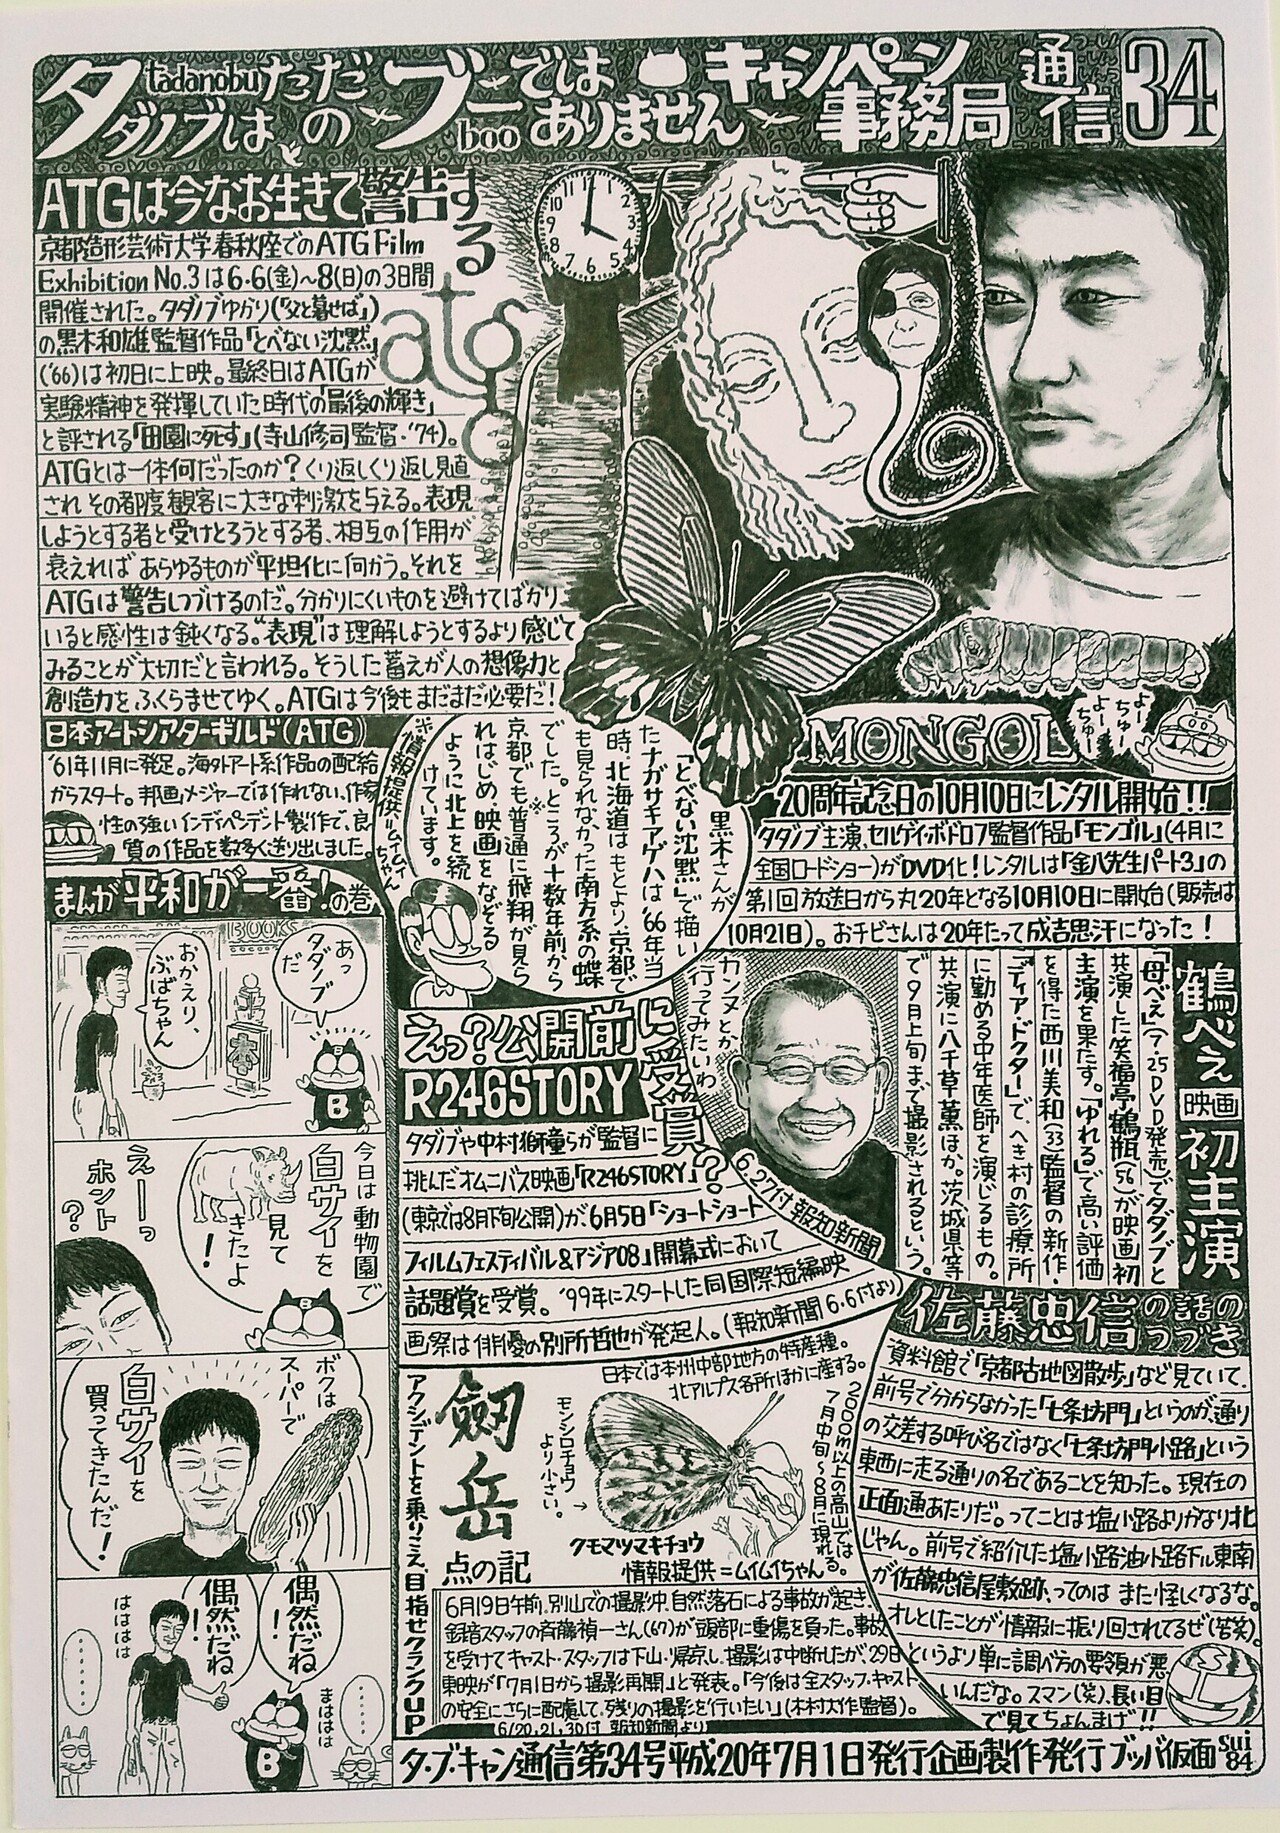 タダノブは ただの ブーでは ありません キャンペーン事務局 通信 34
tadanobu
boo
ATGは今なお生きて警告する
京都造形芸術大学春秋座でのATG Film
Exhibition No.3は6・6(金)〜8(日)の3日間
開催された。タダノブゆかり(「父と暮せば」)
の黒木和雄監督作品「とべない沈黙」
('66)は初日に上映。最終日はATGが
実験精神を発揮していた時代の「最後の輝き」
と評される「田園に死す」(寺山修司監督・'74)。
ATGとは一体何だったのか?くり返しくり返し見直
され その都度観客に大きな刺激を与える。表現
しようとする者と受けとろうとする者、相互の作用が
衰えれば あらゆるものが平坦化に向かう。それを
ATGは警告しつづけるのだ。分かりにくいものを避けてばかり
いると感性は鈍くなる。"表現"は理解しようとするより感じて
みることが大切だと言われる。そうした蓄えが人の想像力と
創造力をふくらませてゆく。ATGは今後もまだまだ必要だ!
atg
12
1
2
3
4
5
6
7
8
9
10
11
日本アートシアターギルド(ATG)
'61年11月に発足。海外アート系作品の配給
からスタート。邦画メジャーでは作れない、作家
性の強いインディペンデント製作で、良
質の作品を数多く送り出しました。
黒木さんが
「とべない沈黙」で描い
たナガサキアゲハは'66年当
時、北海道はもとより、京都で
も見られなかった南方系の蝶
でした。ところが十数年前から
京都でも※普通に飛翔が見ら
れはじめ、映画をなぞる
ように北上を続
けています。
※情報提供=ムイムイちゃん
MONGOL
よーちゅー
よーちゅー
20周年記念日の10月10日にレンタル開始!!
タダノブ主演、セルゲイ・ボドロフ監督作品「モンゴル」(4月に
全国ロードショー)がDVD化!レンタルは「金八先生パート3」の
第1回放送日から丸20年となる10月10日に開始(販売は
10月21日)。おチビさんは20年たって成吉思汗になった!
まんが 平和が一番!の巻
BOOKS
本
あっ
タダノブ
だ
おかえり、
ぶばちゃん
B
今日は動物園で
白サイを
見て
きたよ
!
えーーっ
ホント
?
ボクは
スーパーで
白サイを
買ってきたんだ!
偶然だね
!
偶然だね
!
はははは
まははは
B
鶴べえ 映画 初主演
「母べえ」(7・25DVD発売)でタダノブと
共演した笑福亭鶴瓶(56)が映画初
主演を果たす。「ゆれる」で高い評価
を得た西川美和(33)監督の新作・
「ディア・ドクター」で、へき村の診療所
に勤める中年医師を演じるもの。
共演に八千草薫ほか。茨城県等
で9月上旬まで撮影されるという。
カンヌとか
行ってみたいわ
6.27付 報知新聞
えっ?公開前に受賞?
R246STORY
タダノブや中村獅童らが監督に
挑んだオムニバス映画「R246STORY」
(東京では8月下旬公開)が、6月5日「ショートショート
フィルムフェスティバル&アジア08」開幕式において
話題賞を受賞。'99年にスタートした同国際短編映
画祭は俳優の別所哲也が発起人。(報知新聞6.6付より)
佐藤忠信の話のつづき
資料館で「京都古地図散歩」など見ていて、
前号で分からなかった「七条坊門」というのが、通り
の交差する呼び名ではなく「七条坊門小路」という
東西に走る通りの名であることを知った。現在の
正面通あたりだ。ってことは塩小路よりかなり北
じゃん。前号で紹介した塩小路油小路下ル東南
が佐藤忠信屋敷跡、ってのは また怪しくなるな。
オレとしたことが情報に振り回されてるぜ(苦笑)。
というより単に調べ方の要領が悪
いんだな。スマン(笑)、長い目
で見てちょんまげ!!
アクシデントを乗りこえ、目指せクランクUP
劔岳
点の記
日本では本州中部地方の特産種。
北アルプス各所ほかに産する。
2000m以上の高山では
7月中旬〜8月に現れる。
モンシロチョウ
より小さい。
クモマツマキチョウ
情報提供=ムイムイちゃん
6月19日午前、別山での撮影中、自然落石による事故が起き、
録音スタッフの斉藤禎一さん(67)が頭部に重傷を負った。事故
を受けてキャスト・スタッフは下山・帰京し、撮影は中断したが、29日
東映が「7月1日から撮影再開」と発表。「今後は全スタッフ、キャスト
の安全にさらに配慮して、残りの撮影を行いたい」(木村大作監督)。
6/20、21、30付 報知新聞より
タ・ブ・キャン通信第34号平成20年7月1日発行企画製作発行ブッバ仮面
sui
84